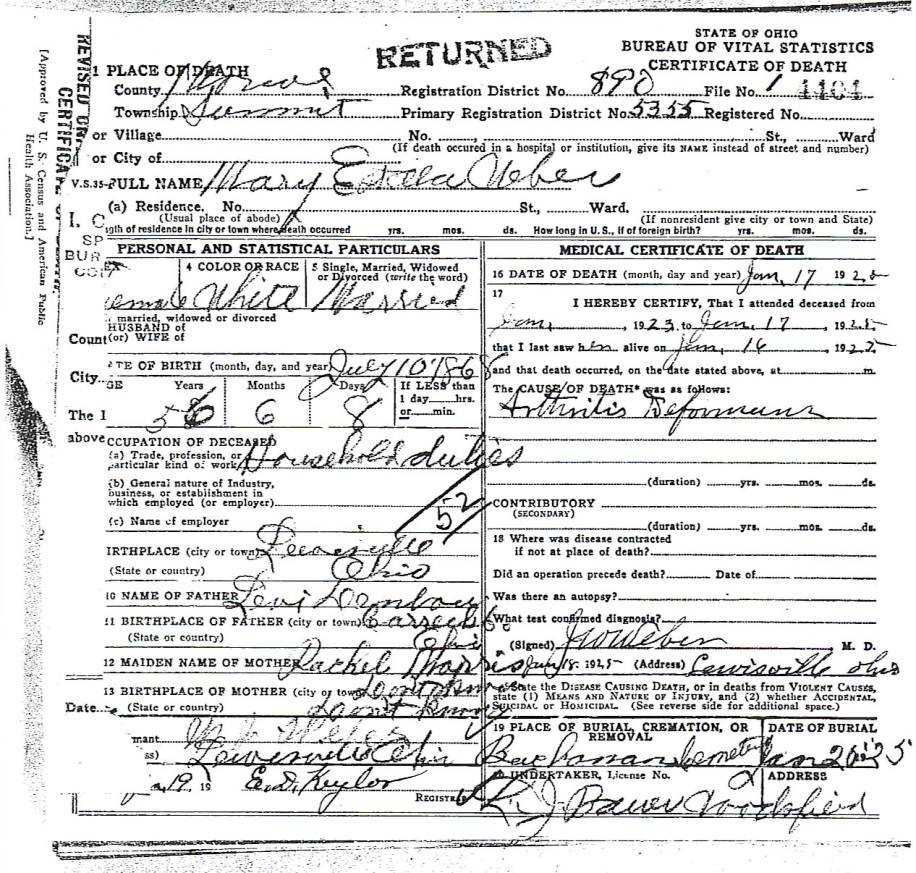 RETURNED
STATE OF OHIO
BUREAU OF VITAL STATISTICS
CERTIFICATE OF DEATH
1 PLACE OF DEATH
County Monroe Registration District No. 890 File No. 1 4404
Township Summit Primary Registration District No. 5355 Registered No.
or Village No. St., Ward
(If death occured in a hospital or institution, give its NAME instead of street and number)
or City of
V.S.35- FULL NAME Mary Estella Weber
(a) Residence. No. St., Ward.
(Usual place of abode) (If nonresident give city or town and State)
gth of residence in city or town where death occurred yrs. mos. ds. How long in U.S., if of foreign birth? yrs. mos. ds.
PERSONAL AND STATISTICAL PARTICULARS
4 COLOR OR RACE 5 Single, Married, Widowed
or Divorced (write the word)
emale White Married
married, widowed or divorced
HUSBAND of
(or) WIFE of
TE OF BIRTH (month, day, and year) July 10 1868
GE Years Months Days If LESS than
1 day hrs.
or min.
56 6 8
CCUPATION OF DECEASED
(a) Trade, profession, or
particular kind of work Household duties
(b) General nature of Industry,
business, or establishment in
which employed (or employer)
52
(c) Name of employer
IRTHPLACE (city or town) Lewisville
(State or country) Ohio
10 NAME OF FATHER Levi
11 BIRTHPLACE OF FATHER (city or town)
(State or country) Ohio
12 MAIDEN NAME OF MOTHER Rachel Morris
13 BIRTHPLACE OF MOTHER (city or town) Dont Know
(State or country) Dont Know
mant
ss) Lewisville Ohio
19, 19 E.D. Keylor
REGISTR
MEDICAL CERTIFICATE OF DEATH
16 DATE OF DEATH (month, day and year) Jan, 17 1925
17
I HEREBY CERTIFY, That I attended deceased from
Jan, , 1923, to Jan, 17 , 1925
that I last saw her alive on Jan, 16 , 1925
and that death occurred, on the date stated above, at m.
The CAUSE OF DEATH* was as follows:
Arthritis Deformans
(duration) yrs. mos. ds.
CONTRIBUTORY
(SECONDARY)
(duration) yrs. mos. ds.
18 Where was disease contracted
if not at place of death?
Did an operation precede death? Date of
Was there an autopsy?
What test confirmed diagnosis?
(Signed) Weber M. D.
Jan, 18, 1925 (Address) Lewisville Ohio
State the DISEASE CAUSING DEATH, or in deaths from VIOLENT CAUSES,
state (1) MEANS AND NATURE OF INJURY, and (2) whether ACCIDENTAL,
SUICIDAL or HOMICIDAL. (See reverse side for additional space.)
19 PLACE OF BURIAL, CREMATION, OR
REMOVAL
DATE OF BURIAL
Buchanan Cemetery Jan 20 1925
UNDERTAKER, License No.
ADDRESS
J Bauer Woodsfield
REVISED OR
CERTIFICA
[Approved by U. S. Census and American Public
Health Association.]
I, C
SP
BUR
COP
Count
City
The l
above
Date